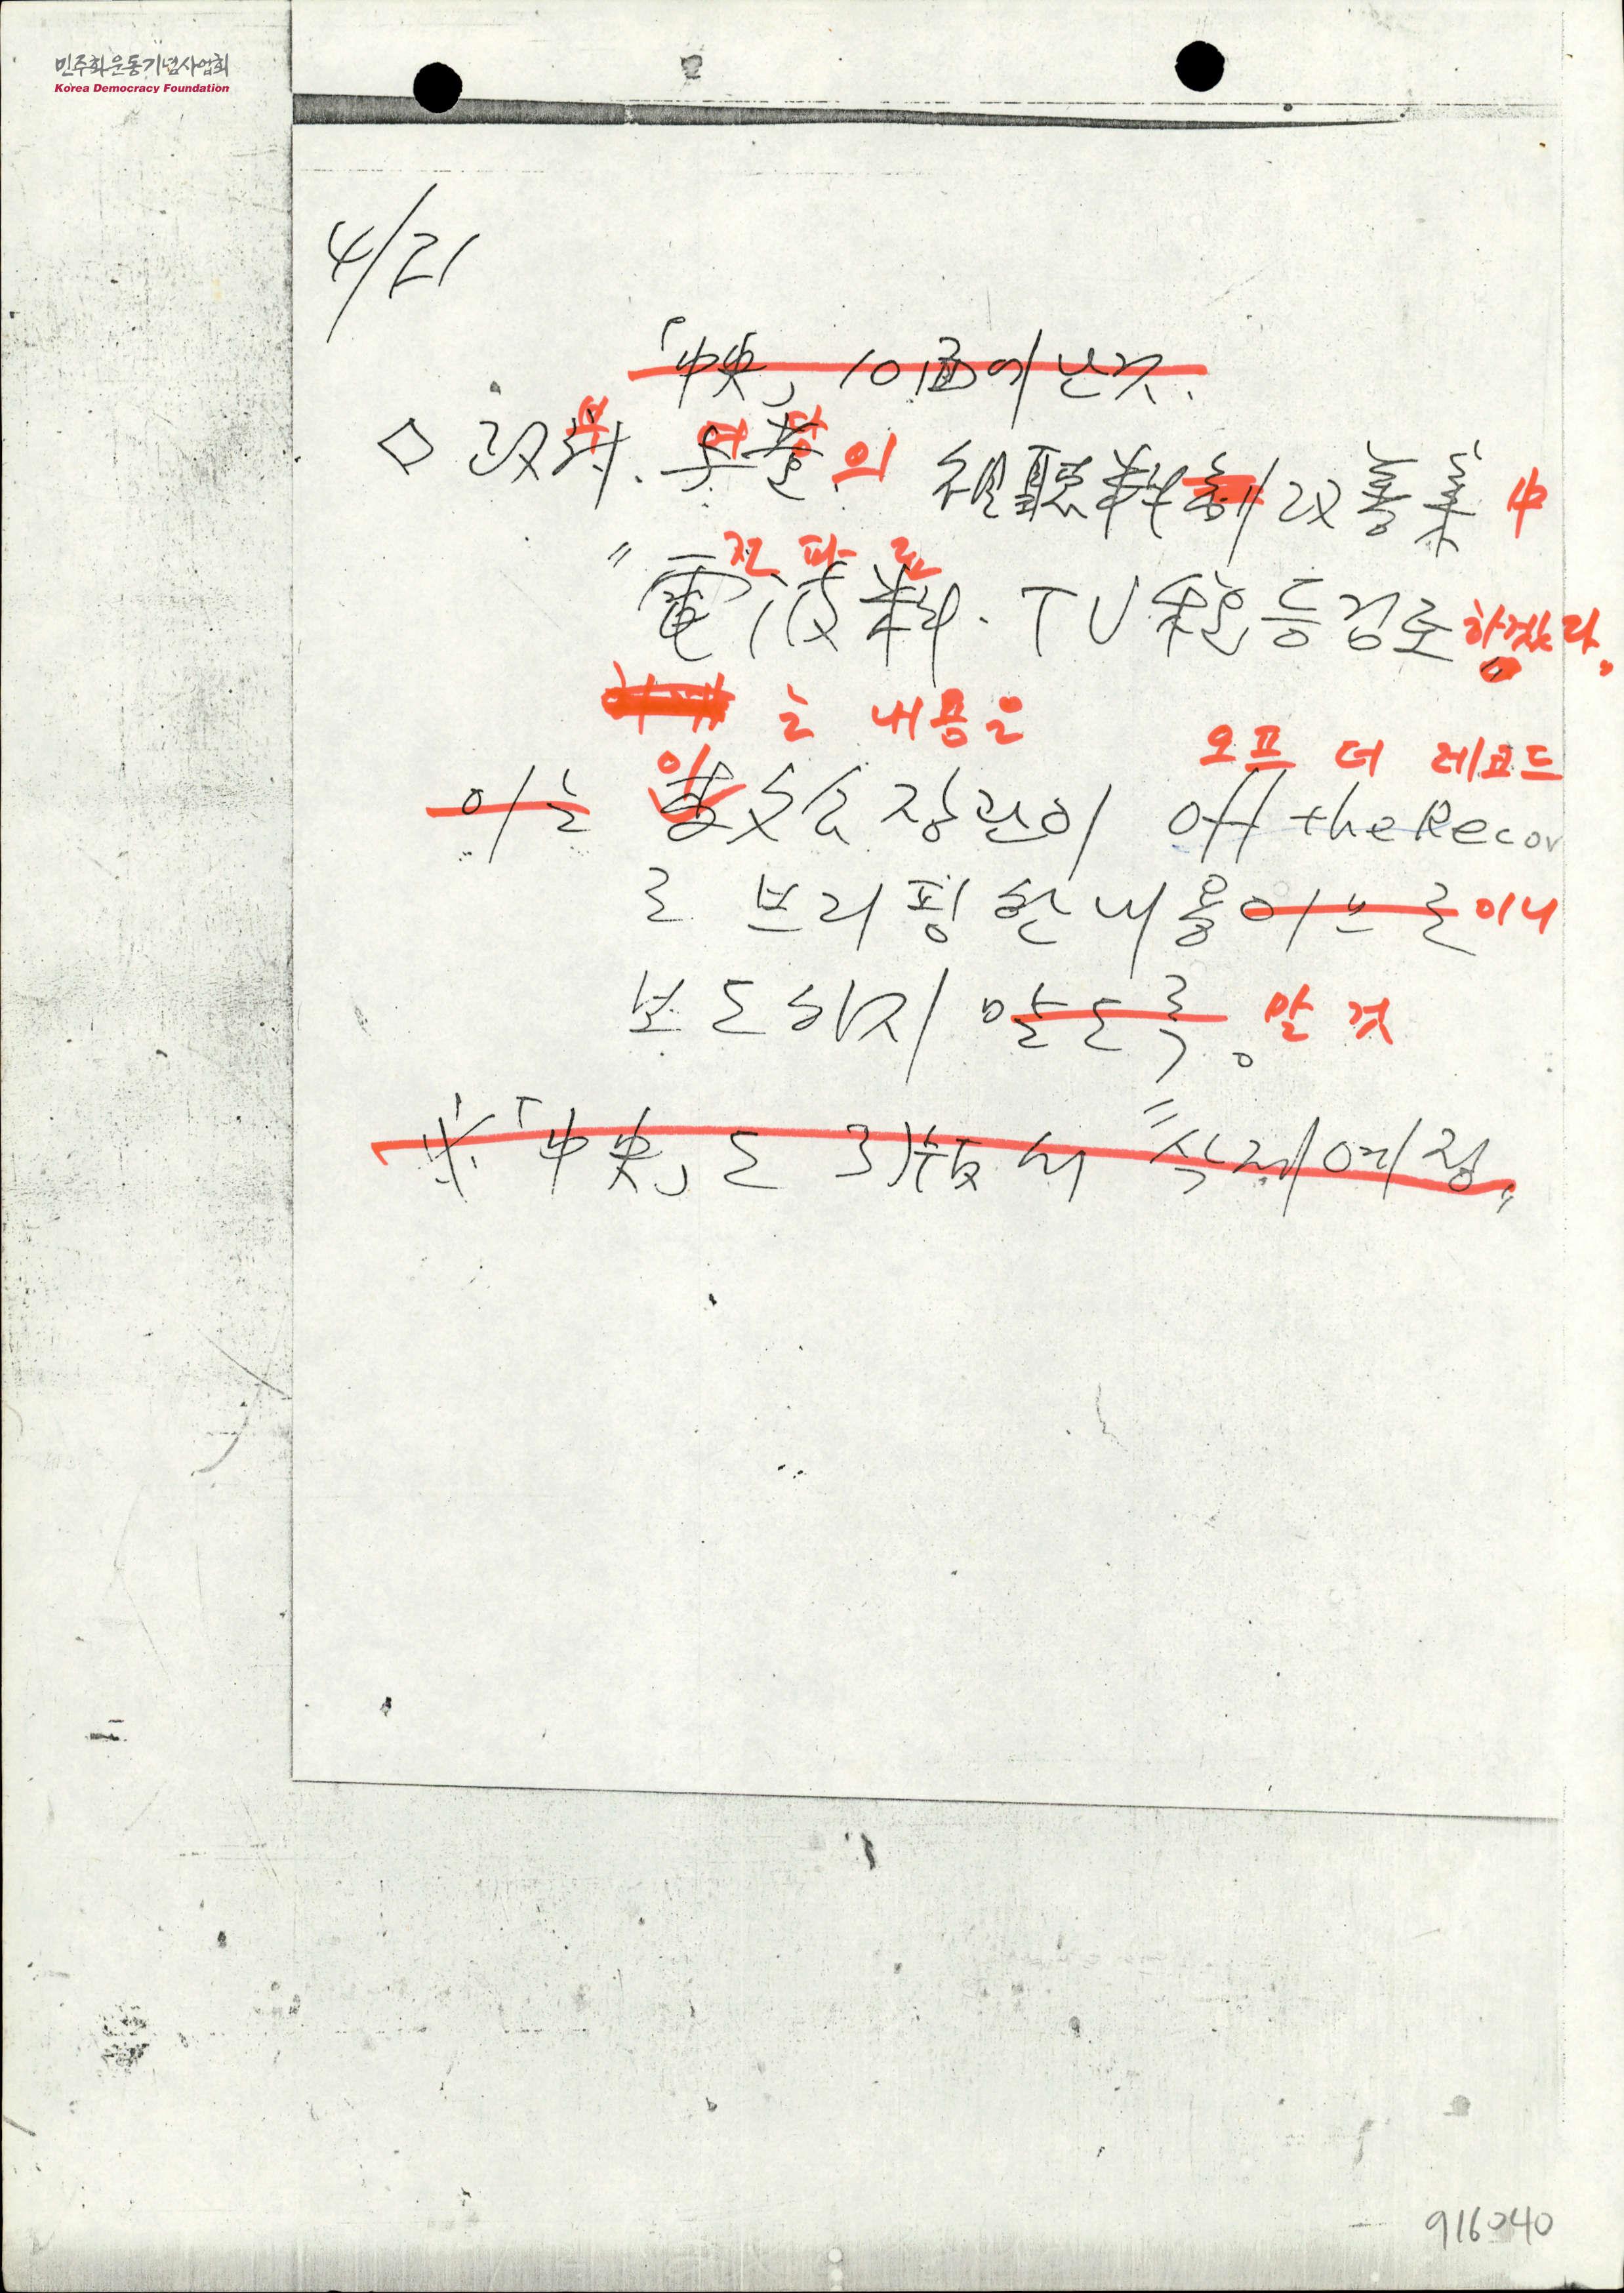 민주화운동기념사업회
Korea Democracy Foundation
4/21
「中央」 10面에 난것.
부 여 당
◇ 政府. 与黨의 視聽料制改善案 中
전 파 료
"電波料. TV稅 등 검토하겠다.
는 내용을 오프 더 레코드
이
이는 文公장관이 off the Recor
로 브리핑한 내용이므로 이니
보도하지 말도록. 말 것
※「中央」도 3)版서 "삭제예정"
916040